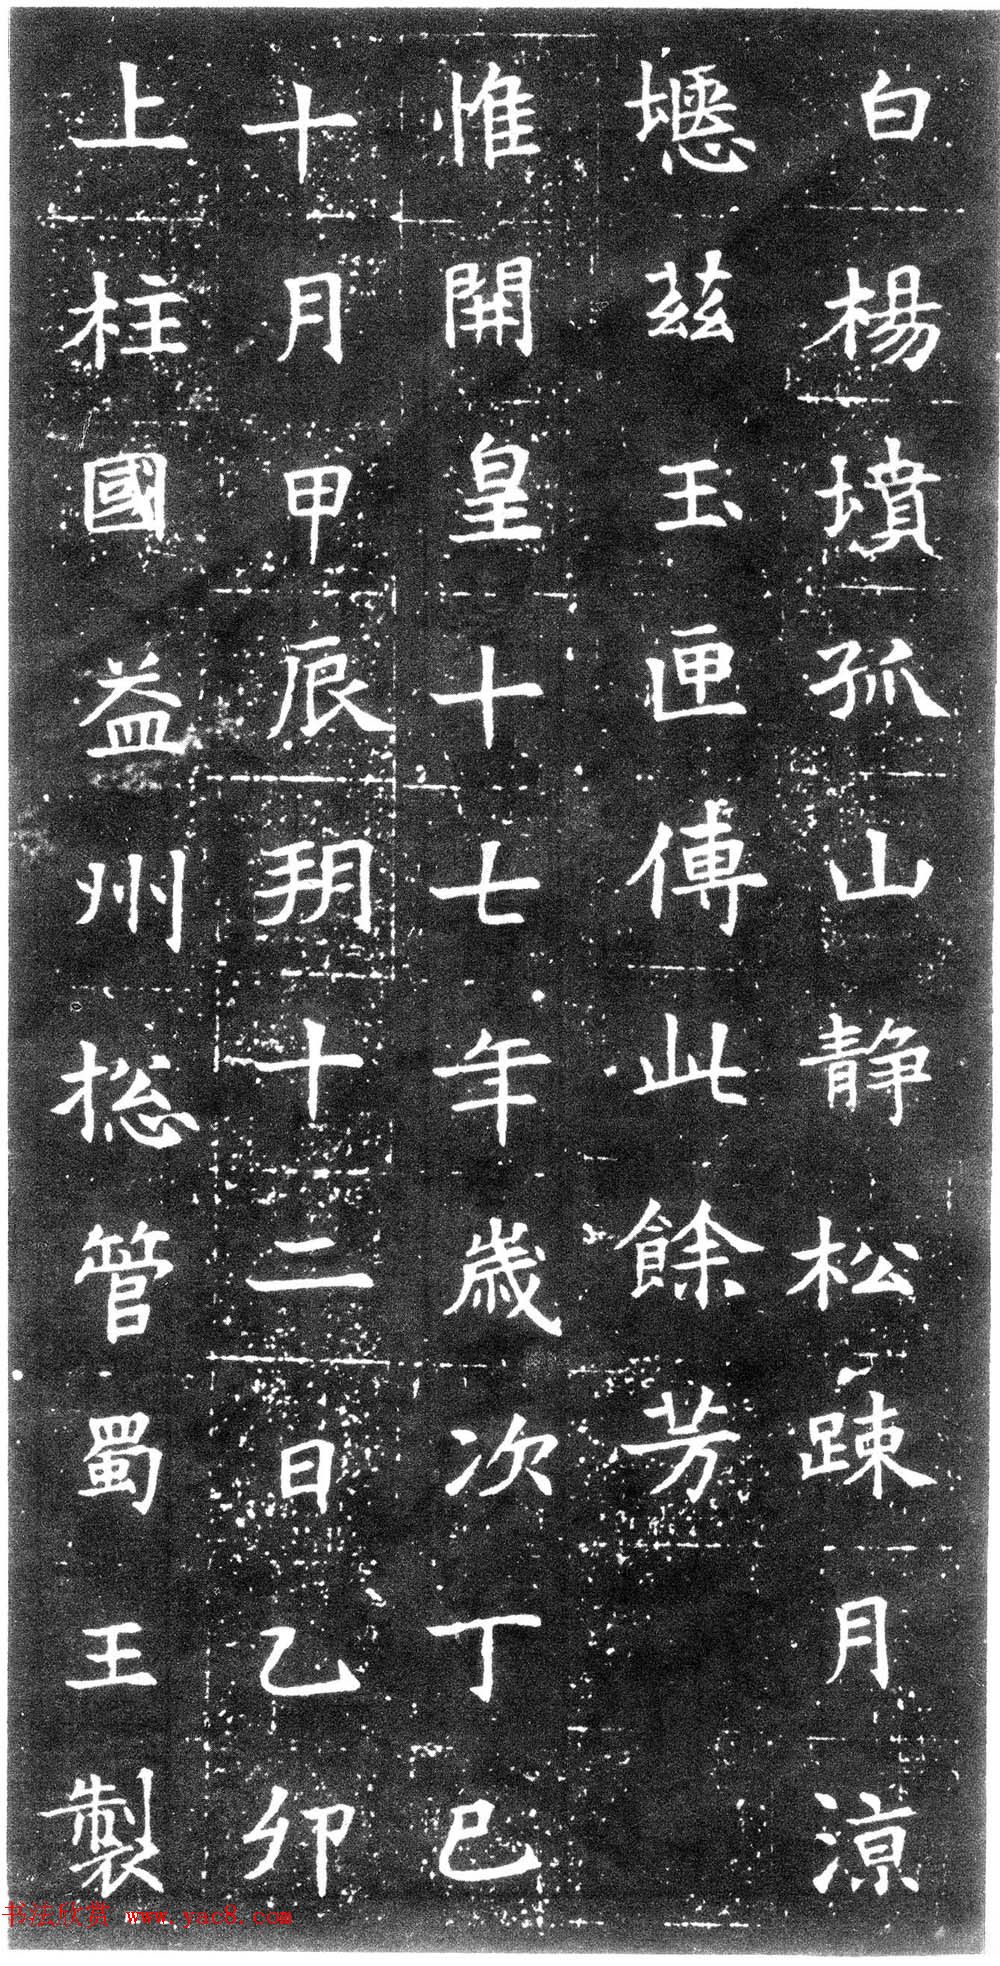 白楊墳孤山靜松踈月涼
瘱茲玉匣傳此餘芳
惟開皇十七年歲次丁巳
十月甲辰朔十二日乙卯
上柱國益州捴管蜀王製
书法欣赏 www.yac8.com